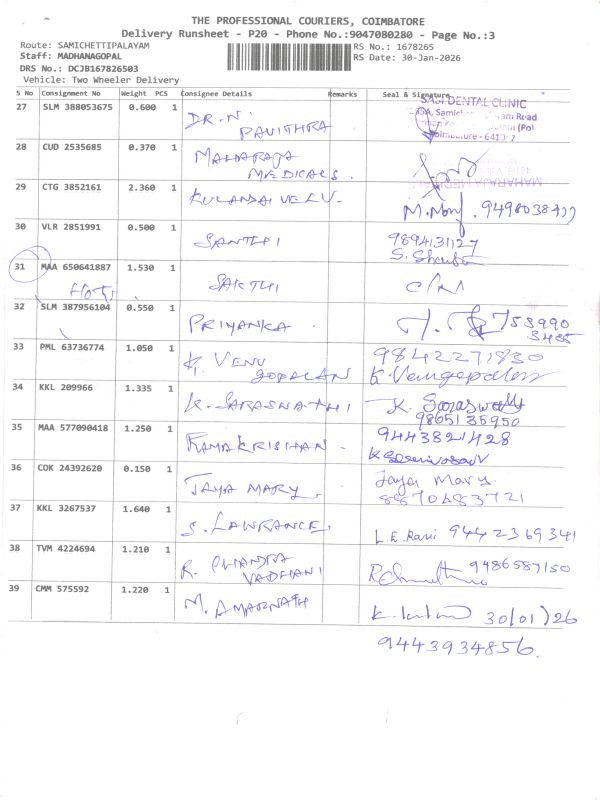 THE PROFESSIONAL COURIERS, COIMBATORE
Delivery Runsheet - P20 - Phone No.:9047080280 - Page No.:3
Route: SAMICHETTIPALAYAM
RS No.: 1678265
Staff: MADHANAGOPAL
RS Date: 30-Jan-2026
DRS No.: DCJB167826503
Vehicle: Two Wheeler Delivery
S No Consignment No Weight PCS Consignee Details Remarks Seal & Signature
SASI DENTAL CLINIC
27 SLM 388053675 0.600 1 DR. N. PAVITHRA
Coimbatore
28 CUD 2535685 0.370 1 MAHARAJA MEDICALS.
MAHARAJA MEDICALS
29 CTG 3852161 2.360 1 KULANDAI VELU.
30 VLR 2851991 0.500 1 SANTHI 9894131127
31 MAA 650641887 1.530 1 SAKTHI
32 SLM 387956104 0.550 1 PRIYANKA
33 PML 63736774 1.050 1 K. VENU GOPALAN 9842271830
K. Venugopalan
34 KKL 209966 1.335 1 K. SARASWATHI K. Saraswathi
9865135950
35 MAA 577090418 1.250 1 RAMAKRISHAN. 9443821428
36 COK 24392620 0.150 1 JAYA MARY. Jaya Mary
8870483721
37 KKL 3267537 1.640 1 S. LAWRANCE. L.E. Rani 9442369341
38 TVM 4224694 1.210 1 R. CHANDRA VADHANI 9486587150
39 CMM 575592 1.220 1 M. AMARNATH 30/01/26
9443934856.